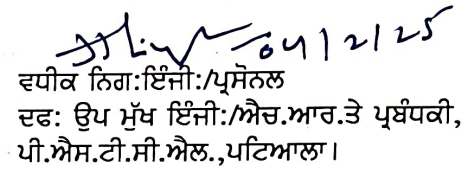 04/2/25
ਵਧੀਕ ਨਿਗ:ਇੰਜੀ:/ਪ੍ਰਸੋਨਲ
ਦਫ: ਉਪ ਮੁੱਖ ਇੰਜੀ:/ਐਚ.ਆਰ.ਤੇ ਪ੍ਰਬੰਧਕੀ,
ਪੀ.ਐਸ.ਟੀ.ਸੀ.ਐਲ.,ਪਟਿਆਲਾ।